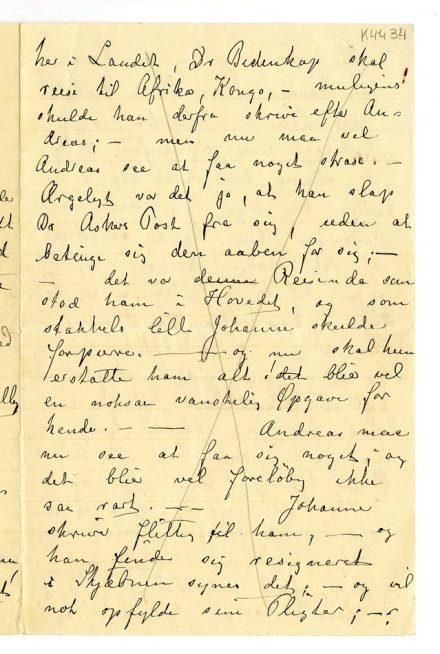 K4434
her i Landet, Dr Bidenkap skal
reise til Afrika, Kongo, – muligens!
skulde han derfra skrive efter An-
dreas; – men nu maa vel
Andreas see at faa noget strax. –
Ærgeligt var det jo, at han slap
Dr Askers Post fra sig, uden at
betinge sig den aaben for sig; –
– det var denne Reisen da som
stod ham i Hovedet, og som
stakkels lille Johanne skulde
forpurre. – og nu skal hun
erstatte ham alt! det blir vel
en noksaa vanskelig Opgave for
hende. – – Andreas maa
nu see at faa sig noget, og
det blir vel foreløbig ikke
saa rart. – – Johanne
skrive flittig til ham, – og
han finder sig resigneret
i Skjæbnen synes det; – og vil
nok opfylde sine Pligter; –